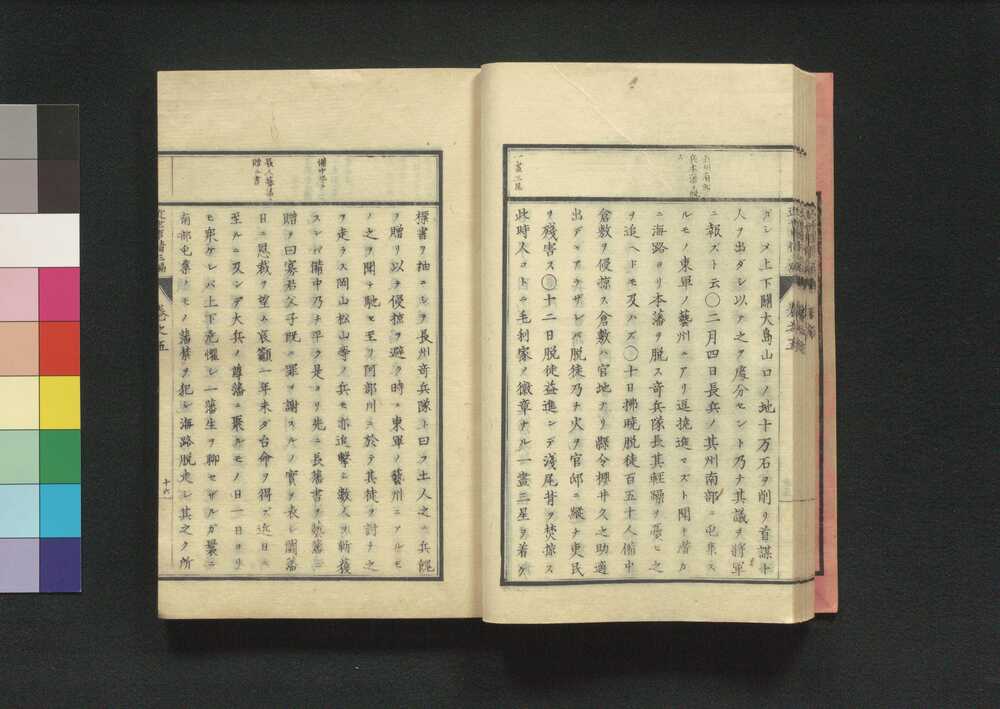 グシメ上下關大島山口ノ地十万石ヲ削リ首謀ト
人ヲ出ダシ以テ之ヲ處分セント乃チ其議ヲ將軍
ニ報ズト云〇二月四日長兵ノ其州南部ニ屯集ス
ルモノ東軍ノ藝州ニアリ逗撓進マズト聞キ潛カ
ニ海路ヨリ本藩ヲ脱ス奇兵隊長其輕躁ヲ憂ヒ之
ヲ追ヘドモ及バズ〇十日拂曉脱徒百五十人備中
倉敷ヲ侵掠ス倉敷ハ官地ナリ縣令櫻井久之助適
出デヽアラザレバ脱徒乃チ火ヲ官邸ニ縱チ吏民
ヲ殘害ス〇十二日脱徒益進ンデ淺尾背ヲ焚掠ス
此時人コトニ毛利家ノ徽章ナル一畫三星ヲ着ケ
一畫三星
標書ヲ抽ニシヲ長州奇兵隊ト曰フ土人之ニ兵餉
ヲ贈リ以テ侵掠ヲ避ク時ニ東軍ノ藝州ニアルモ
ノ之ヲ聞キ馳セ至リ阿部川ニ於テ其徒ヲ討チ之
ヲ走ラス岡山松山等ノ兵モ亦追擊シ數人ヲ斬獲
スレバ備中乃チ平ク是ヨリ先ニ長藩書ヲ藝藩ニ
贈テ曰寡君父子既ニ罪ヲ謝スルノ實ヲ表シ闔藩
日ニ恩裁ヲ望ム哀籲一年未ダ台命ヲ得ズ近日ニ
至ルニ及ンデ大兵ノ尊藩ニ聚ルモノ日一日ヨリ
モ衆ケレバ上下危懼シ一藩生ヲ聊セザルガ爲ニ
南部屯集ノモノ藩禁ヲ犯シ海路脱走シ其之ク所
長人藝藩ニ
贈ル書
卷之五
十六